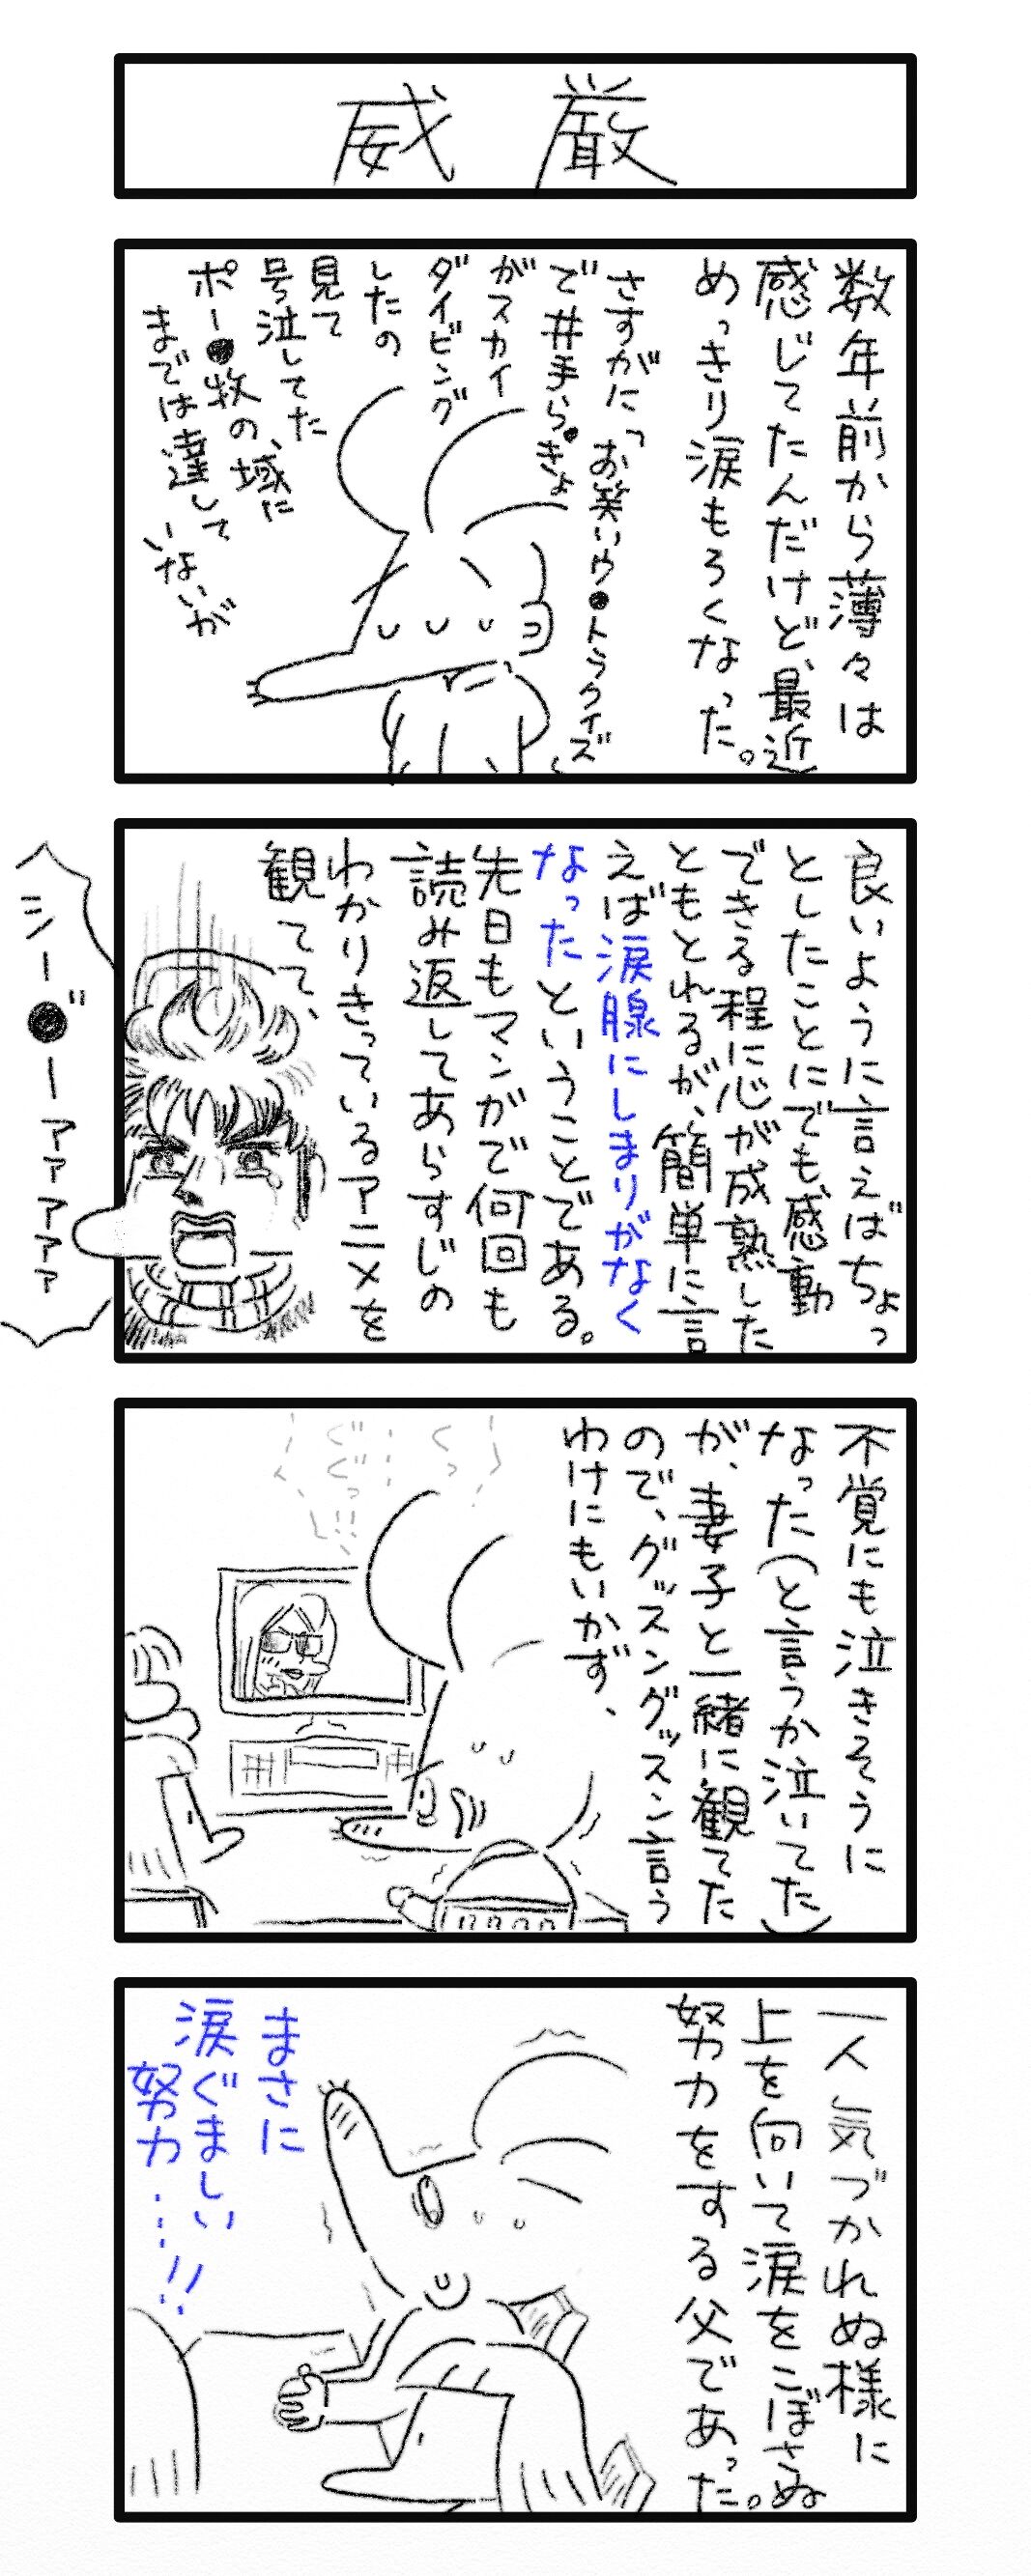 威厳
数年前から薄々は
感じてたんだけど、最近
めっきり涙もろくなった。
さすがに「お笑いウ●トラクイズ」
で井手ら●きょ
がスカイ
ダイビング
したの
見て
号泣してた
ポー●牧の域に
までは達して
いないが
良いように言えばちょっ
としたことにでも感動
できる程に心が成熟した
ともとれるが、簡単に言
えば涙腺にしまりがなく
なったということである。
先日もマンガで何回も
読み返してあらすじの
わかりきっているアニメを
観てて、
シー●゛ーァァァァァ
不覚にも泣きそうに
なった(と言うか泣いてた)
が、妻子と一緒に観てた
ので、グッスングッスン言う
わけにもいかず、
くっ
ぐぐっ!!
一人気づかれぬ様に
上を向いて涙をこぼさぬ
努力をする父であった。
まさに
涙ぐましい
努力…!!